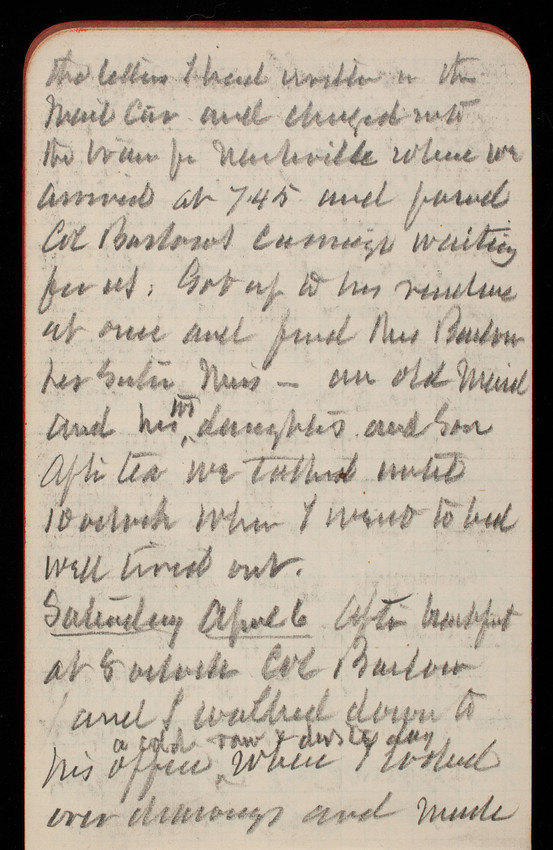 the letters I had written in the
Mail Car and changed into
the train for Nashville where we
arrived at 745 and found
Col Barlows Carriage waiting
for us. Got up to his residence
at once and find Mrs Barlow
her Sister Miss — an old Maid
and his two daughters and Son
After tea we talked until
10 oclock when I went to bed
well tired out.
Saturday April 6 After breakfast
at 8 oclock Col Barlow
and I walked down to
a cold raw & day
his office, where I looked
over drawings and made